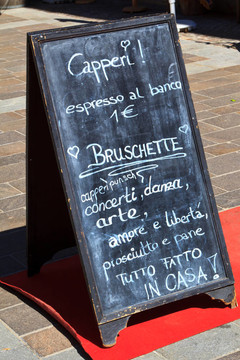 Capperi!
espresso al banco
1€
BRUSCHETTE
capperi
concerti, danza,
arte,
amore e libertá,
prosciutto e pane
TUTTO FATTO
IN CASA!